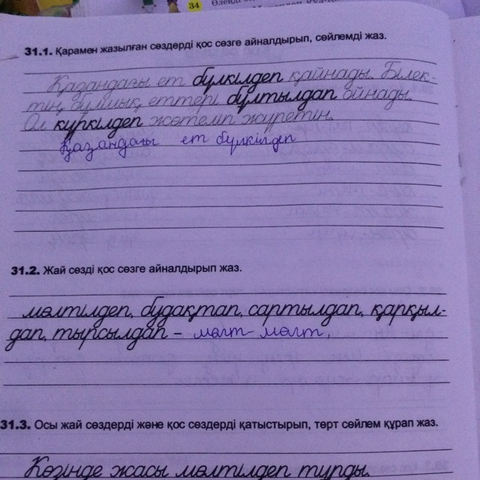 34
31.1. Қарамен жазылған сөздерді қос сөзге айналдырып, сөйлемді жаз.
Қазандағы ет бүлкілдеп қайнады. Білек-
тің бұлшық еттері бұлтылдап ойнады.
Ол күркілдеп жөтеліп жүретін.
Қазандағы ет бүлкілдеп
31.2. Жай сөзді қос сөзге айналдырып жаз.
мөлтілдеп, будақтап, сартылдап, қарқыл-
дап, тырсылдап – мөлт-мөлт,
31.3. Осы жай сөздерді және қос сөздерді қатыстырып, төрт сөйлем құрап жаз.
Көзінде жасы мөлтілдеп тұрды.